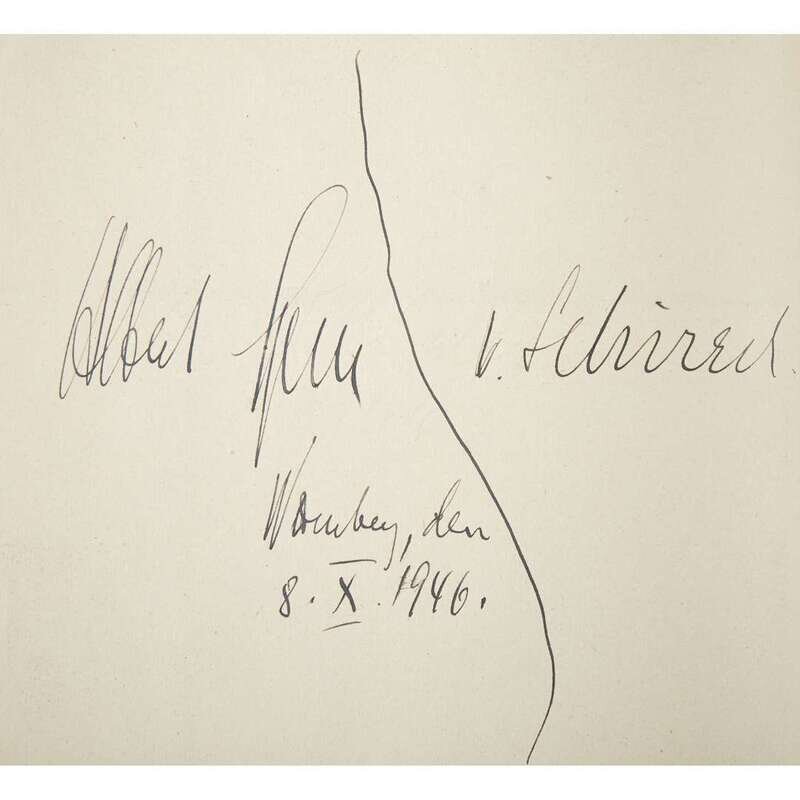 Albert Speer
v. Schirach.
Nürnberg, den
8. X. 1946.